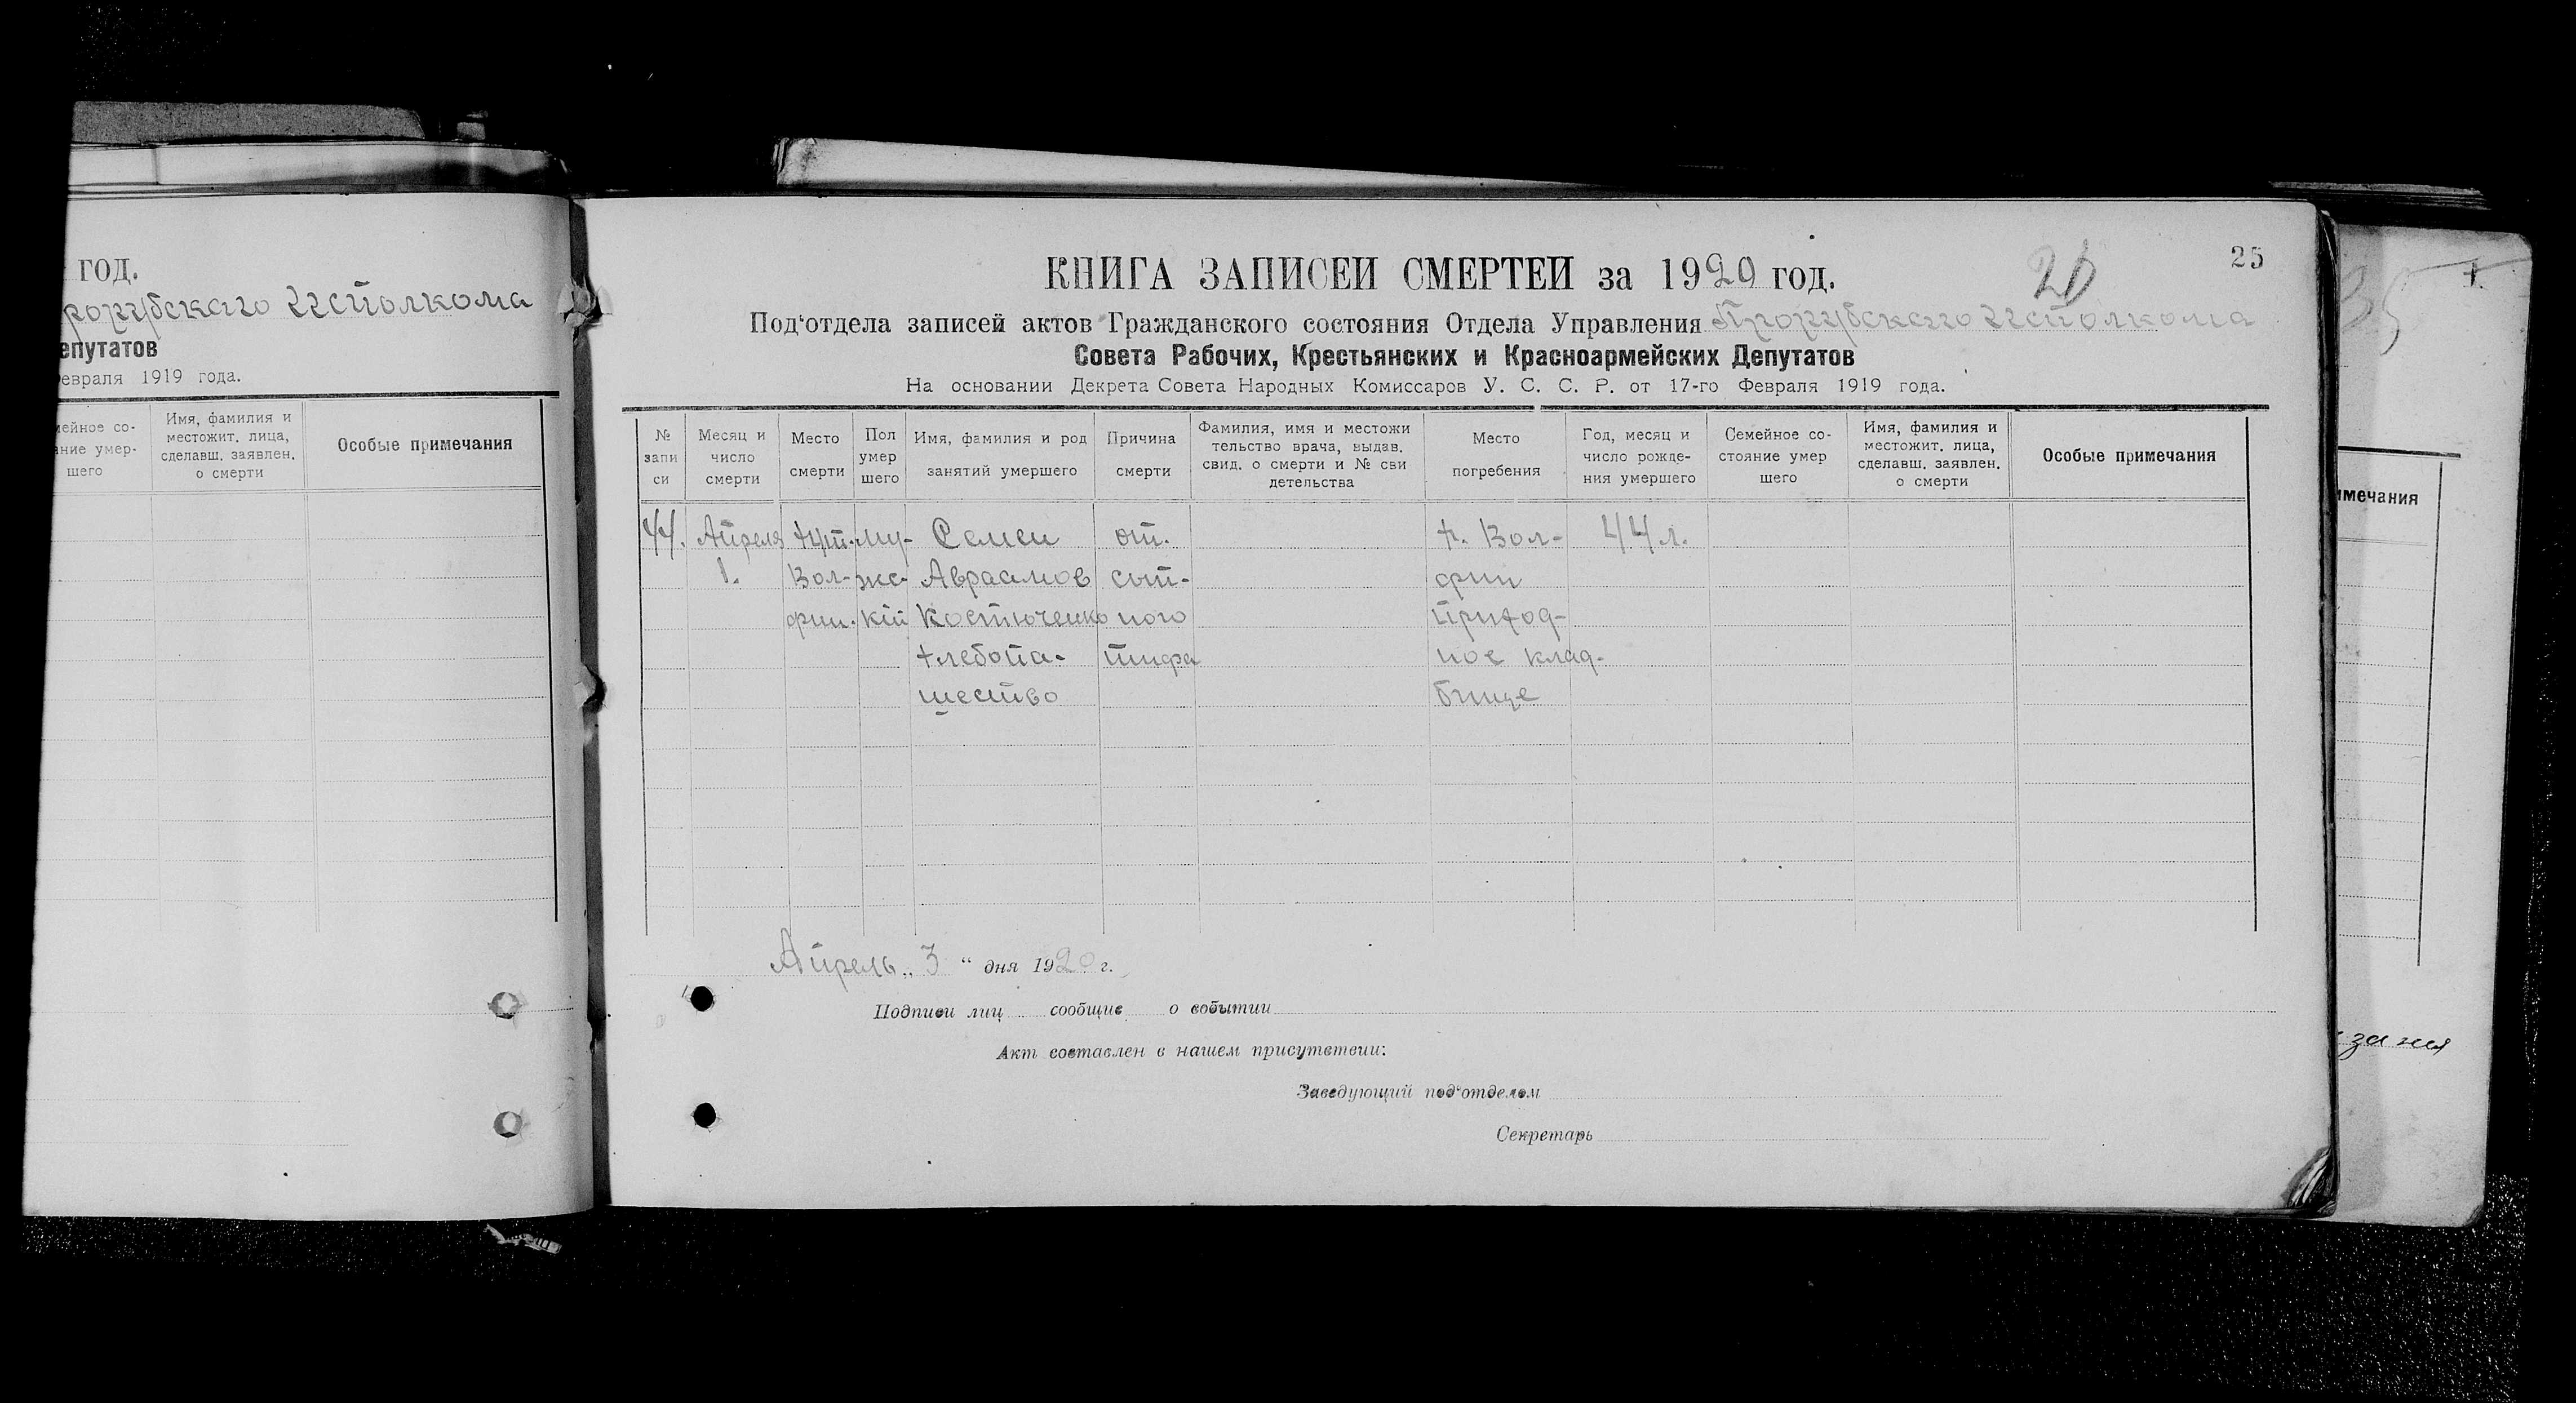 ГОД.
рорубского Исполкома
епутатов
евраля 1919 года.
мейное со-
ние умер-
шего
Имя, фамилия и
местожит. лица,
сделавш. заявлен.
о смерти
Особые примечания
КНИГА ЗАПИСЕЙ СМЕРТЕЙ за 1920 год.
25
Под'отдела записей актов Гражданского состояния Отдела Управления Прорубского Исполкома
Совета Рабочих, Крестьянских и Красноармейских Депутатов
На основании Декрета Совета Народных Комиссаров У. С. С. Р. от 17-го Февраля 1919 года.
№
запи
си
Месяц и
число
смерти
Место
смерти
Пол
умер
шего
Имя, фамилия и род
занятий умершего
Причина
смерти
Фамилия, имя и местожи
тельство врача, выдав.
свид. о смерти и № сви
детельства
Место
погребения
Год, месяц и
число рожде-
ния умершего
Семейное со-
стояние умер
шего
Имя, фамилия и
местожит. лица,
сделавш. заявлен.
о смерти
Особые примечания
44.
Апреля
1.
хут.
Вол-
фин.
му-
жс-
кій
Семен
Авраамов
Костюченко
хлебопа-
шество
от.
сып-
ного
тифа
х. Вол-
фин
приход-
ное клад-
бище
44 л.
Апрель „ 3 “ дня 1920 г.
Подписи лиц сообщив о событии
Акт составлен в нашем присутствии:
Заведующий под'отделом
Секретарь
имечания
35
зания